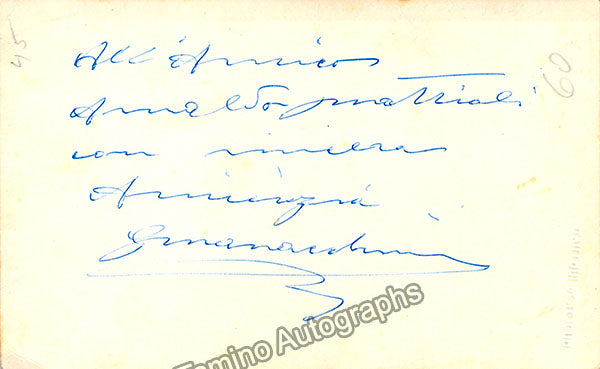 45
60
All'Amico
Arnaldo Mattioli
con sincera
Amicizia
Tamino Autographs